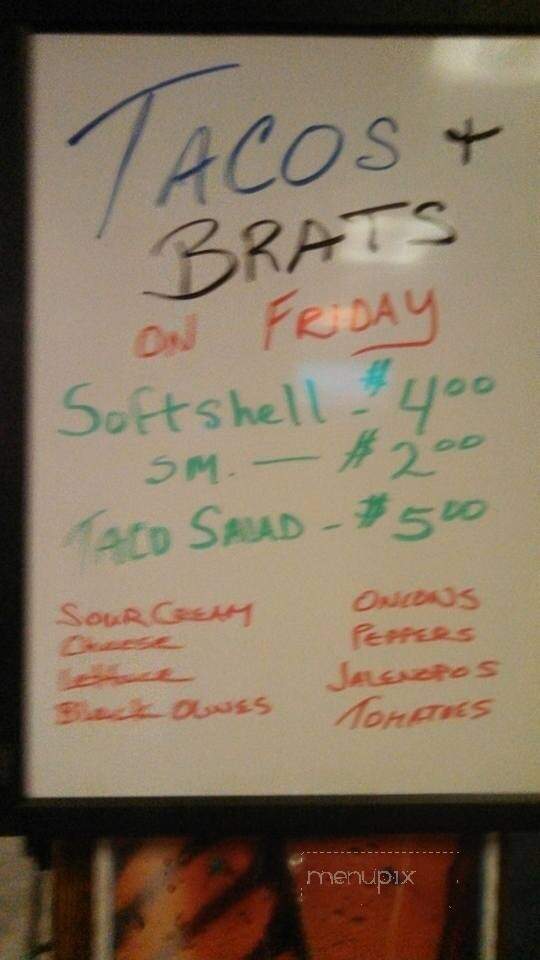 TACOS +
BRATS
ON FRIDAY
Softshell - $4.00
SM. — $2.00
TACO SALAD - $5.00
SOUR CREAM
Cheese
Lettuce
Black OLIVES
ONIONS
PEPPERS
JALENOPOS
TOMATOES
menupix